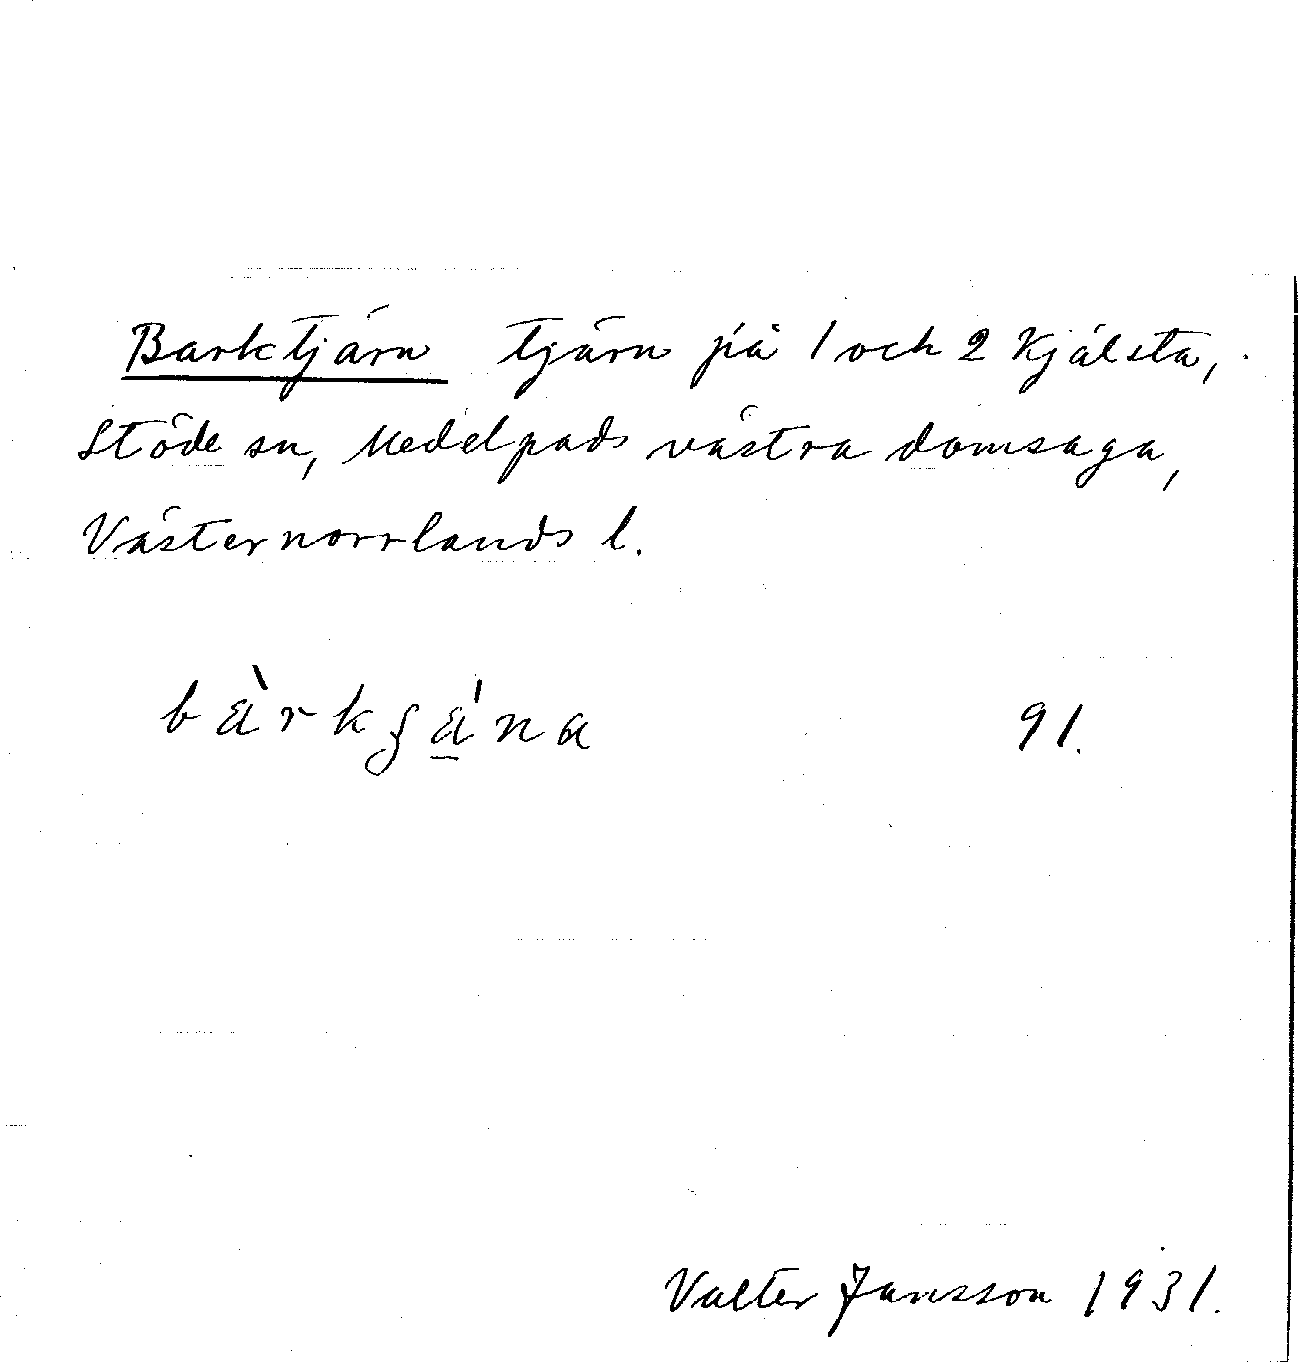 Barktjärn tjärn på 1 och 2 Kjälsta,
Stöde sn, Medelpads västra domsaga,
Västernorrlands l.
bàrkʂa̲̍na 91.
Valter Jansson 1931.